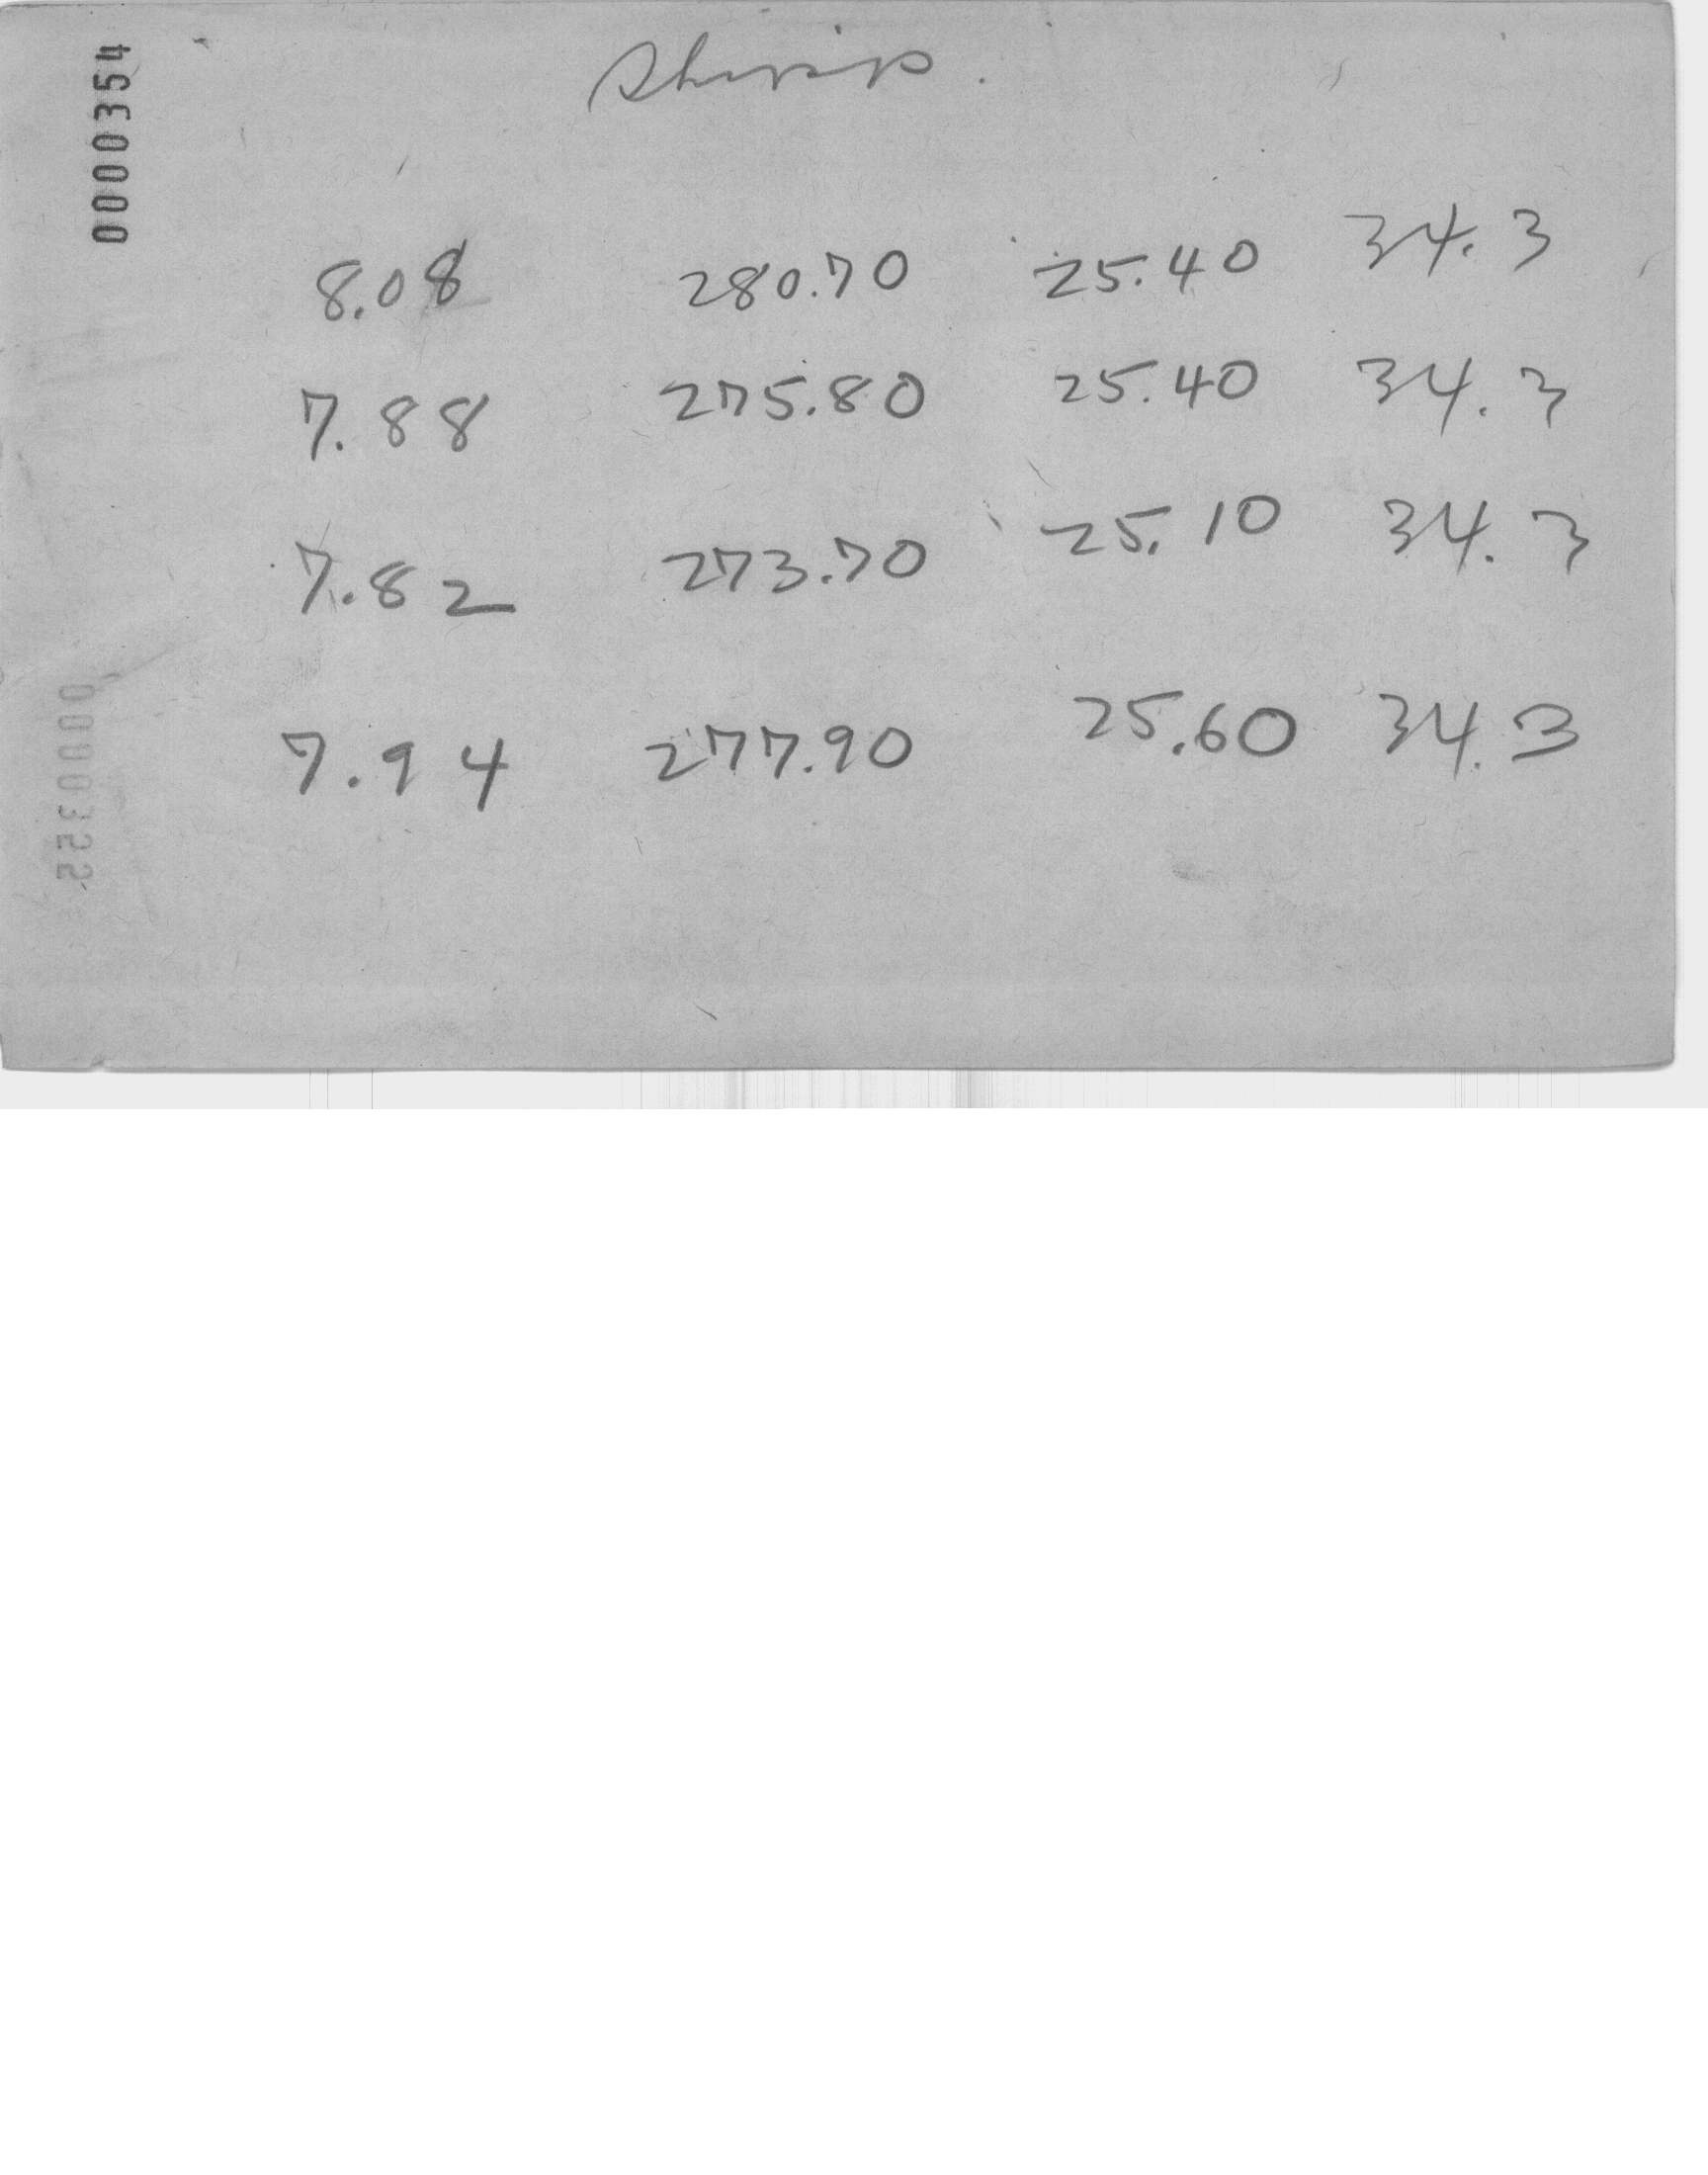 0000354
8.08 280.70 25.40 34.3
7.88 275.80 25.40 34.3
7.82 273.70 25.10 34.3
7.94 277.90 25.60 34.3
0000355